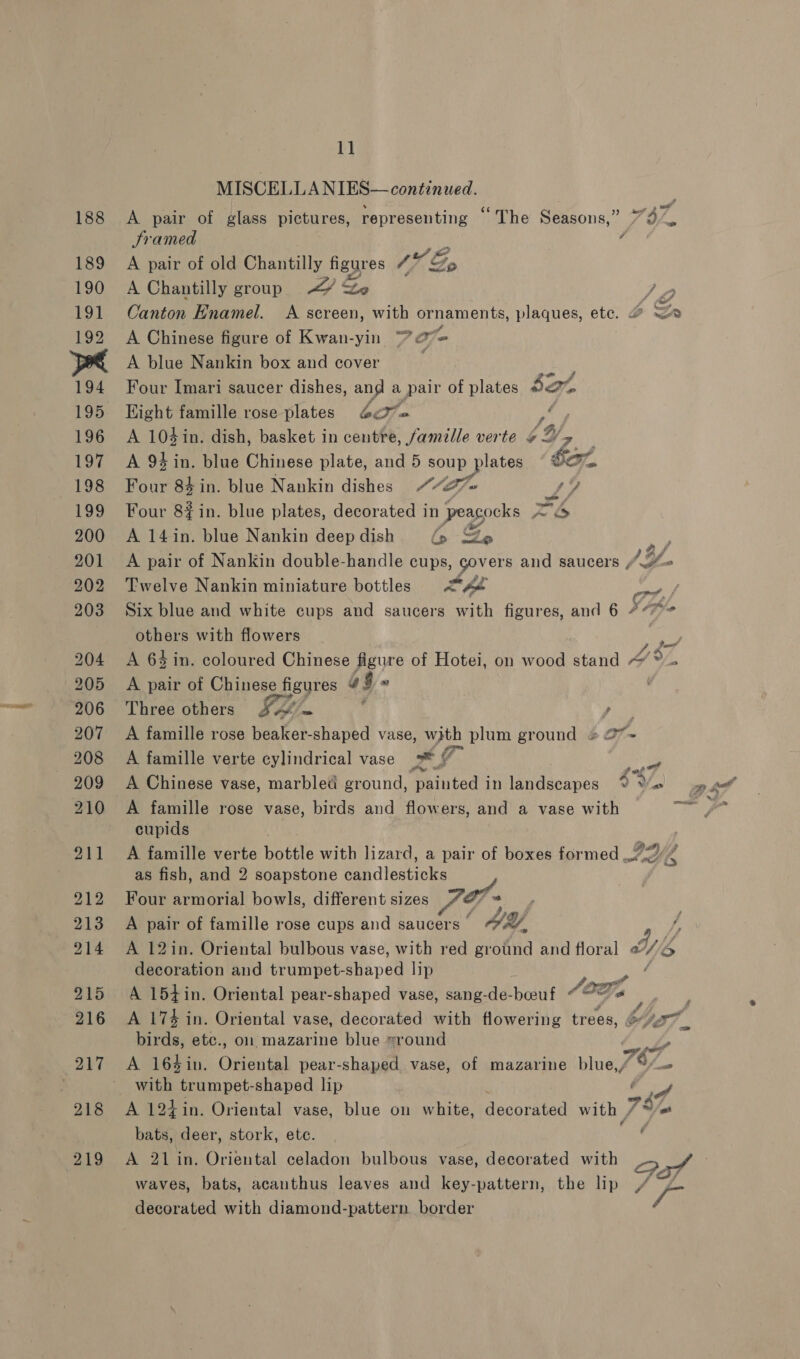 11
MISCELLANIES—continued.
188 A pair of glass pictures, representing “The Seasons,”
framed
189 A pair of old Chantilly figures
190 A Chantilly group
191 Canton Enamel. A screen, with ornaments, plaques, etc.
192 A Chinese figure of Kwan-yin
A blue Nankin box and cover
194 Four Imari saucer dishes, and a pair of plates
195 Eight famille rose plates
196 A 10½in. dish, basket in centre, famille verte
197 A 9½in. blue Chinese plate, and 5 soup plates
198 Four 8½in. blue Nankin dishes
199 Four 8¾in. blue plates, decorated in peacocks
200 A 14in. blue Nankin deep dish
201 A pair of Nankin double-handle cups, covers and saucers
202 Twelve Nankin miniature bottles
203 Six blue and white cups and saucers with figures, and 6
others with flowers
204 A 6½in. coloured Chinese figure of Hotei, on wood stand
205 A pair of Chinese figures
206 Three others
207 A famille rose beaker-shaped vase, with plum ground
208 A famille verte cylindrical vase
209 A Chinese vase, marbled ground, painted in landscapes
210 A famille rose vase, birds and flowers, and a vase with
cupids
211 A famille verte bottle with lizard, a pair of boxes formed
as fish, and 2 soapstone candlesticks
212 Four armorial bowls, different sizes
213 A pair of famille rose cups and saucers
214 A 12in. Oriental bulbous vase, with red ground and floral
decoration and trumpet-shaped lip
215 A 15¼in. Oriental pear-shaped vase, sang-de-bœuf
216 A 17½in. Oriental vase, decorated with flowering trees,
birds, etc., on mazarine blue ground
217 A 16½in. Oriental pear-shaped vase, of mazarine blue,
with trumpet-shaped lip
218 A 12¼in. Oriental vase, blue on white, decorated with
bats, deer, stork, etc.
219 A 21in. Oriental celadon bulbous vase, decorated with
waves, bats, acanthus leaves and key-pattern, the lip
decorated with diamond-pattern border